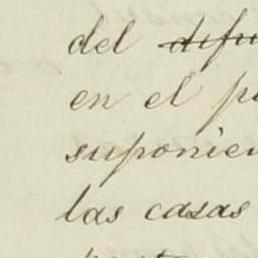 del difu
en el p
suponien
las casas